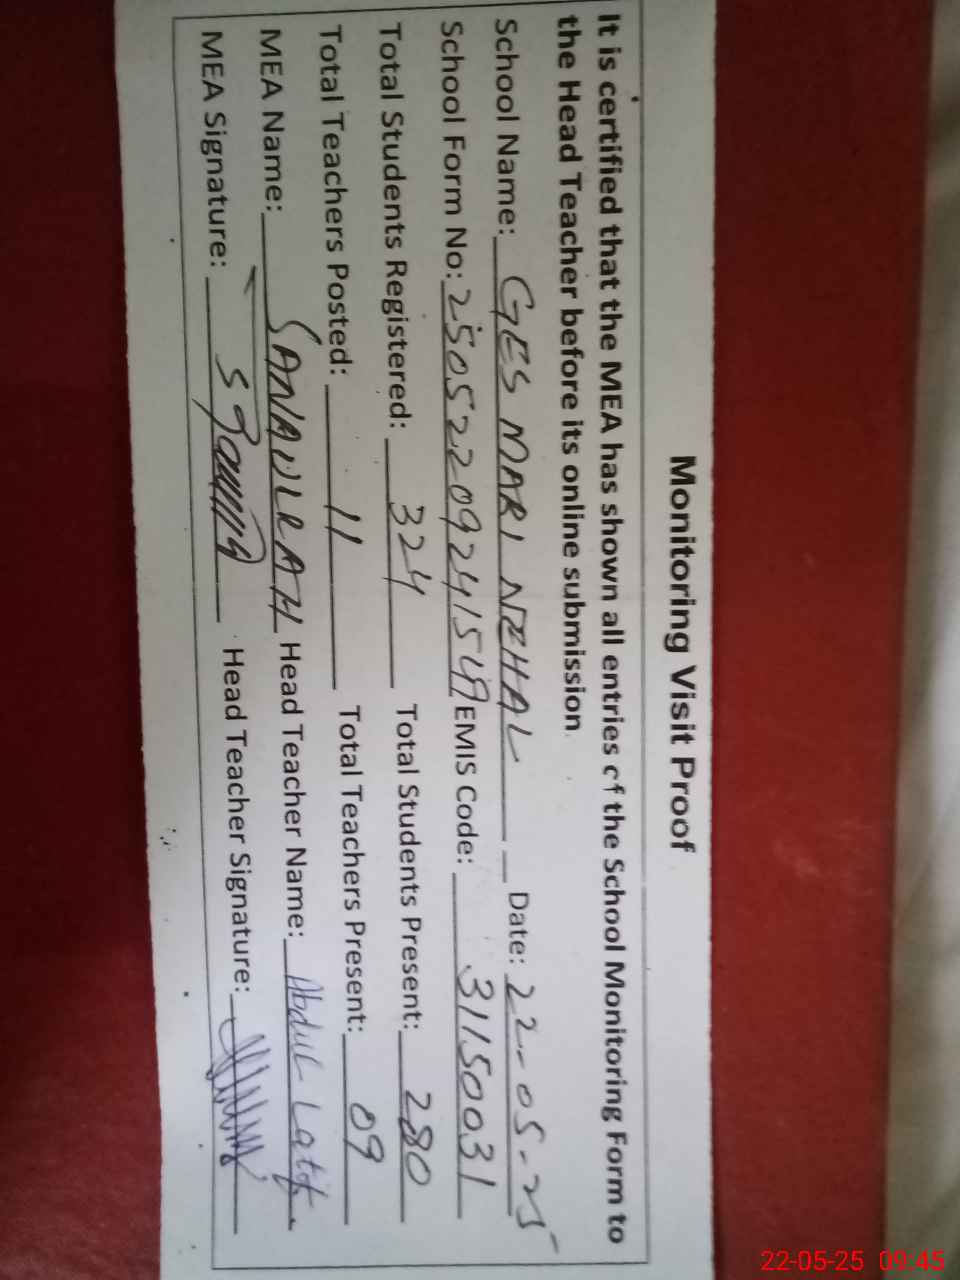 Monitoring Visit Proof
It is certified that the MEA has shown all entries of the School Monitoring Form to
the Head Teacher before its online submission.
School Name: GES MARI NEHAL Date: 22-05-25
School Form No: EMIS Code: 31150031
Total Students Registered: 324 Total Students Present: 280
Total Teachers Posted: 11 Total Teachers Present: 09
MEA Name: SANAULLAH Head Teacher Name: Abdul Latif
MEA Signature: Head Teacher Signature:
22-05-25 09:45